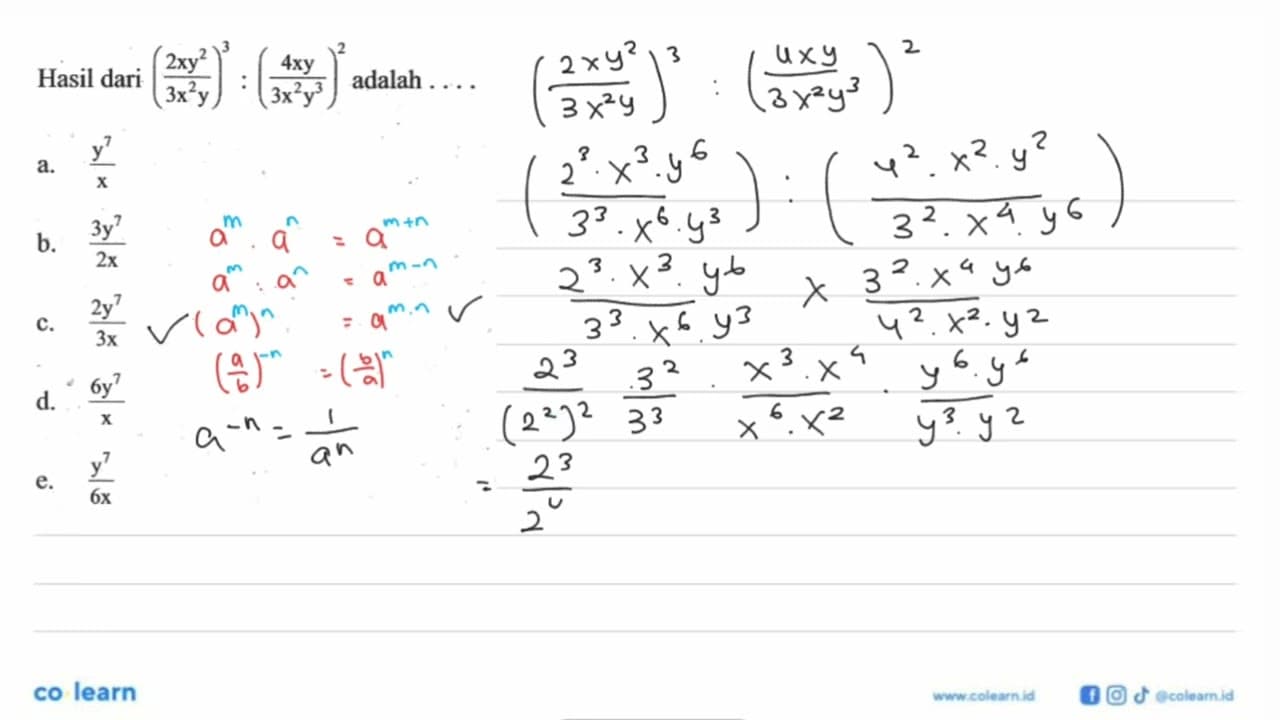 Hasil dari (2xy²/3x²y)³ : (4xy/3x²y³)² adalah . . . .
a. y⁷/x
b. 3y⁷/2x
c. 2y⁷/3x
d. 6y⁷/x
e. y⁷/6x
aᵐ . aⁿ = aᵐ⁺ⁿ
aᵐ : aⁿ = aᵐ⁻ⁿ
✓ (aᵐ)ⁿ = aᵐ·ⁿ ✓
(a/b)⁻ⁿ = (b/a)ⁿ
a⁻ⁿ = 1/aⁿ
(2xy²/3x²y)³ : (4xy/3x²y³)²
(2³·x³·y⁶/3³·x⁶·y³) : (4².x².y²/3².x⁴.y⁶)
2³·x³·y⁶/3³.x⁶.y³ × 3².x⁴y⁶/4².x².y²
2³/(2²)² .3²/3³ . x³.x⁴/x⁶.x² . y⁶.y⁶/y³.y²
= 2³/2⁴
co learn
www.colearn.id
@colearn.id